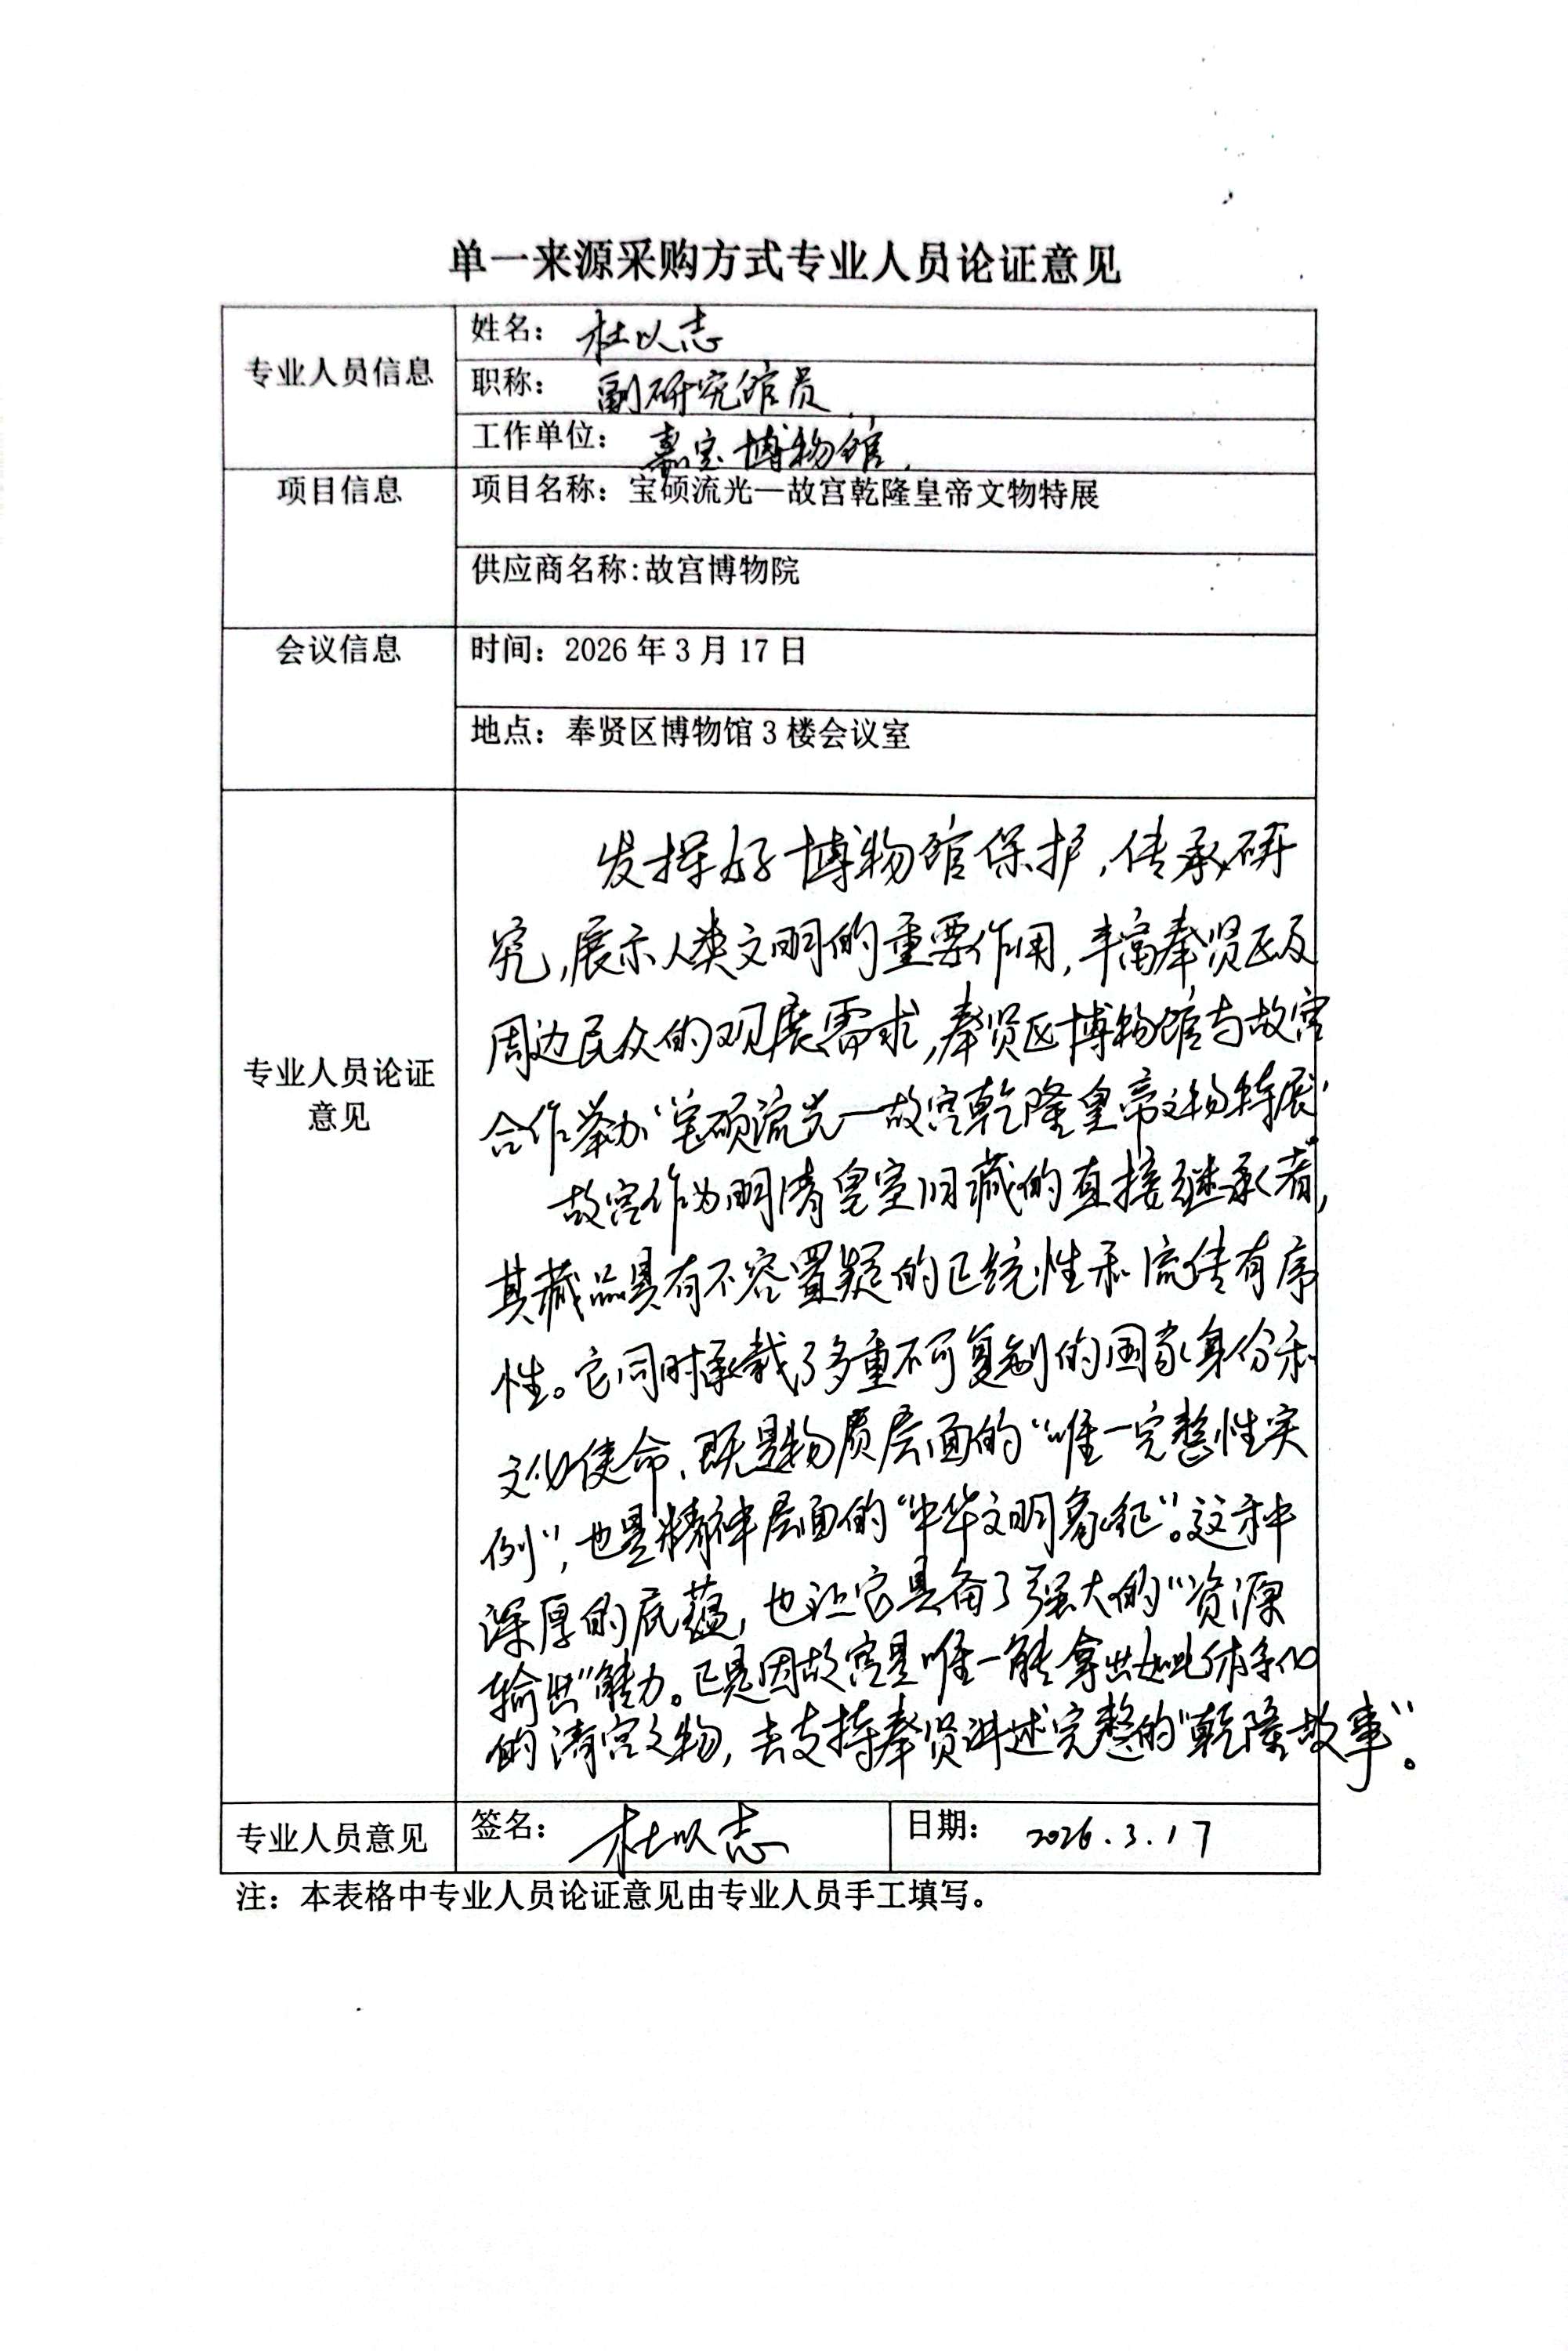 单一来源采购方式专业人员论证意见
专业人员信息
姓名：杜以志
职称：副研究馆员
工作单位：嘉定博物馆
项目信息
项目名称：宝硕流光—故宫乾隆皇帝文物特展
供应商名称:故宫博物院
会议信息
时间：2026年3月17日
地点：奉贤区博物馆3楼会议室
专业人员论证
意见
发挥好博物馆保护，传承研
究，展示人类文明的重要作用，丰富奉贤区及
周边民众的观展需求，奉贤区博物馆与故宫
合作举办“宝硕流光—故宫乾隆皇帝文物特展”
故宫作为明清皇室旧藏的直接继承者，
其藏品具有不容置疑的正统性和流传有序
性。它同时承载了多重不可复制的国家身份和
文化使命、既是物质层面的“唯一完整性实
例”，也是精神层面的“中华文明象征”。这种
深厚的底蕴，也让它具备了强大的“资源
输出”能力。正是因故宫是唯一能拿出如此体系化
的清宫文物，去支持奉贤讲述完整的“乾隆故事”。
专业人员意见
签名：杜以志
日期：2026.3.17
注：本表格中专业人员论证意见由专业人员手工填写。